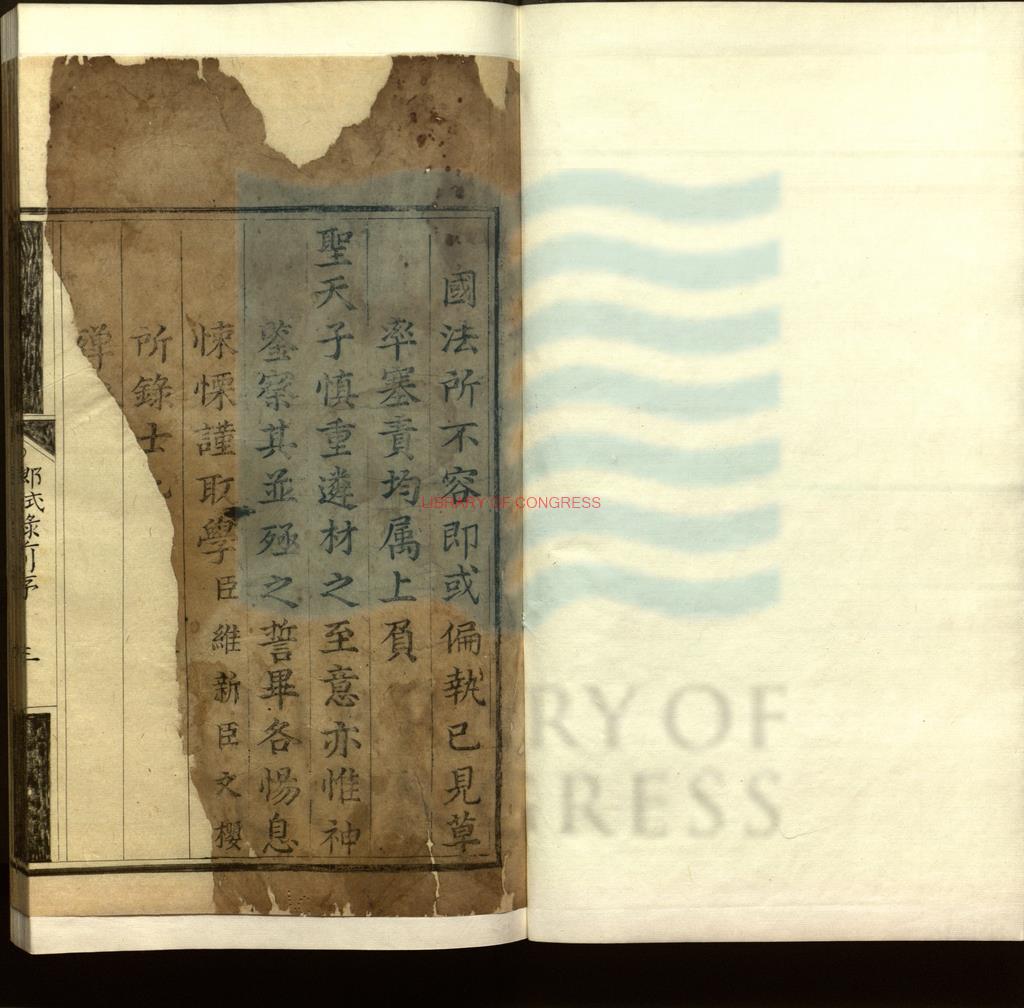 國法所不容即或偏執已見草
率塞責均属上負
聖天子慎重遴材之至意亦惟神
鉴察其並殛之誓畢各惕息
悚慄謹取學臣維新臣文櫻
所錄士
殫
式錄前序
LIBRARY OF CONGRESS
RY OF
GRESS